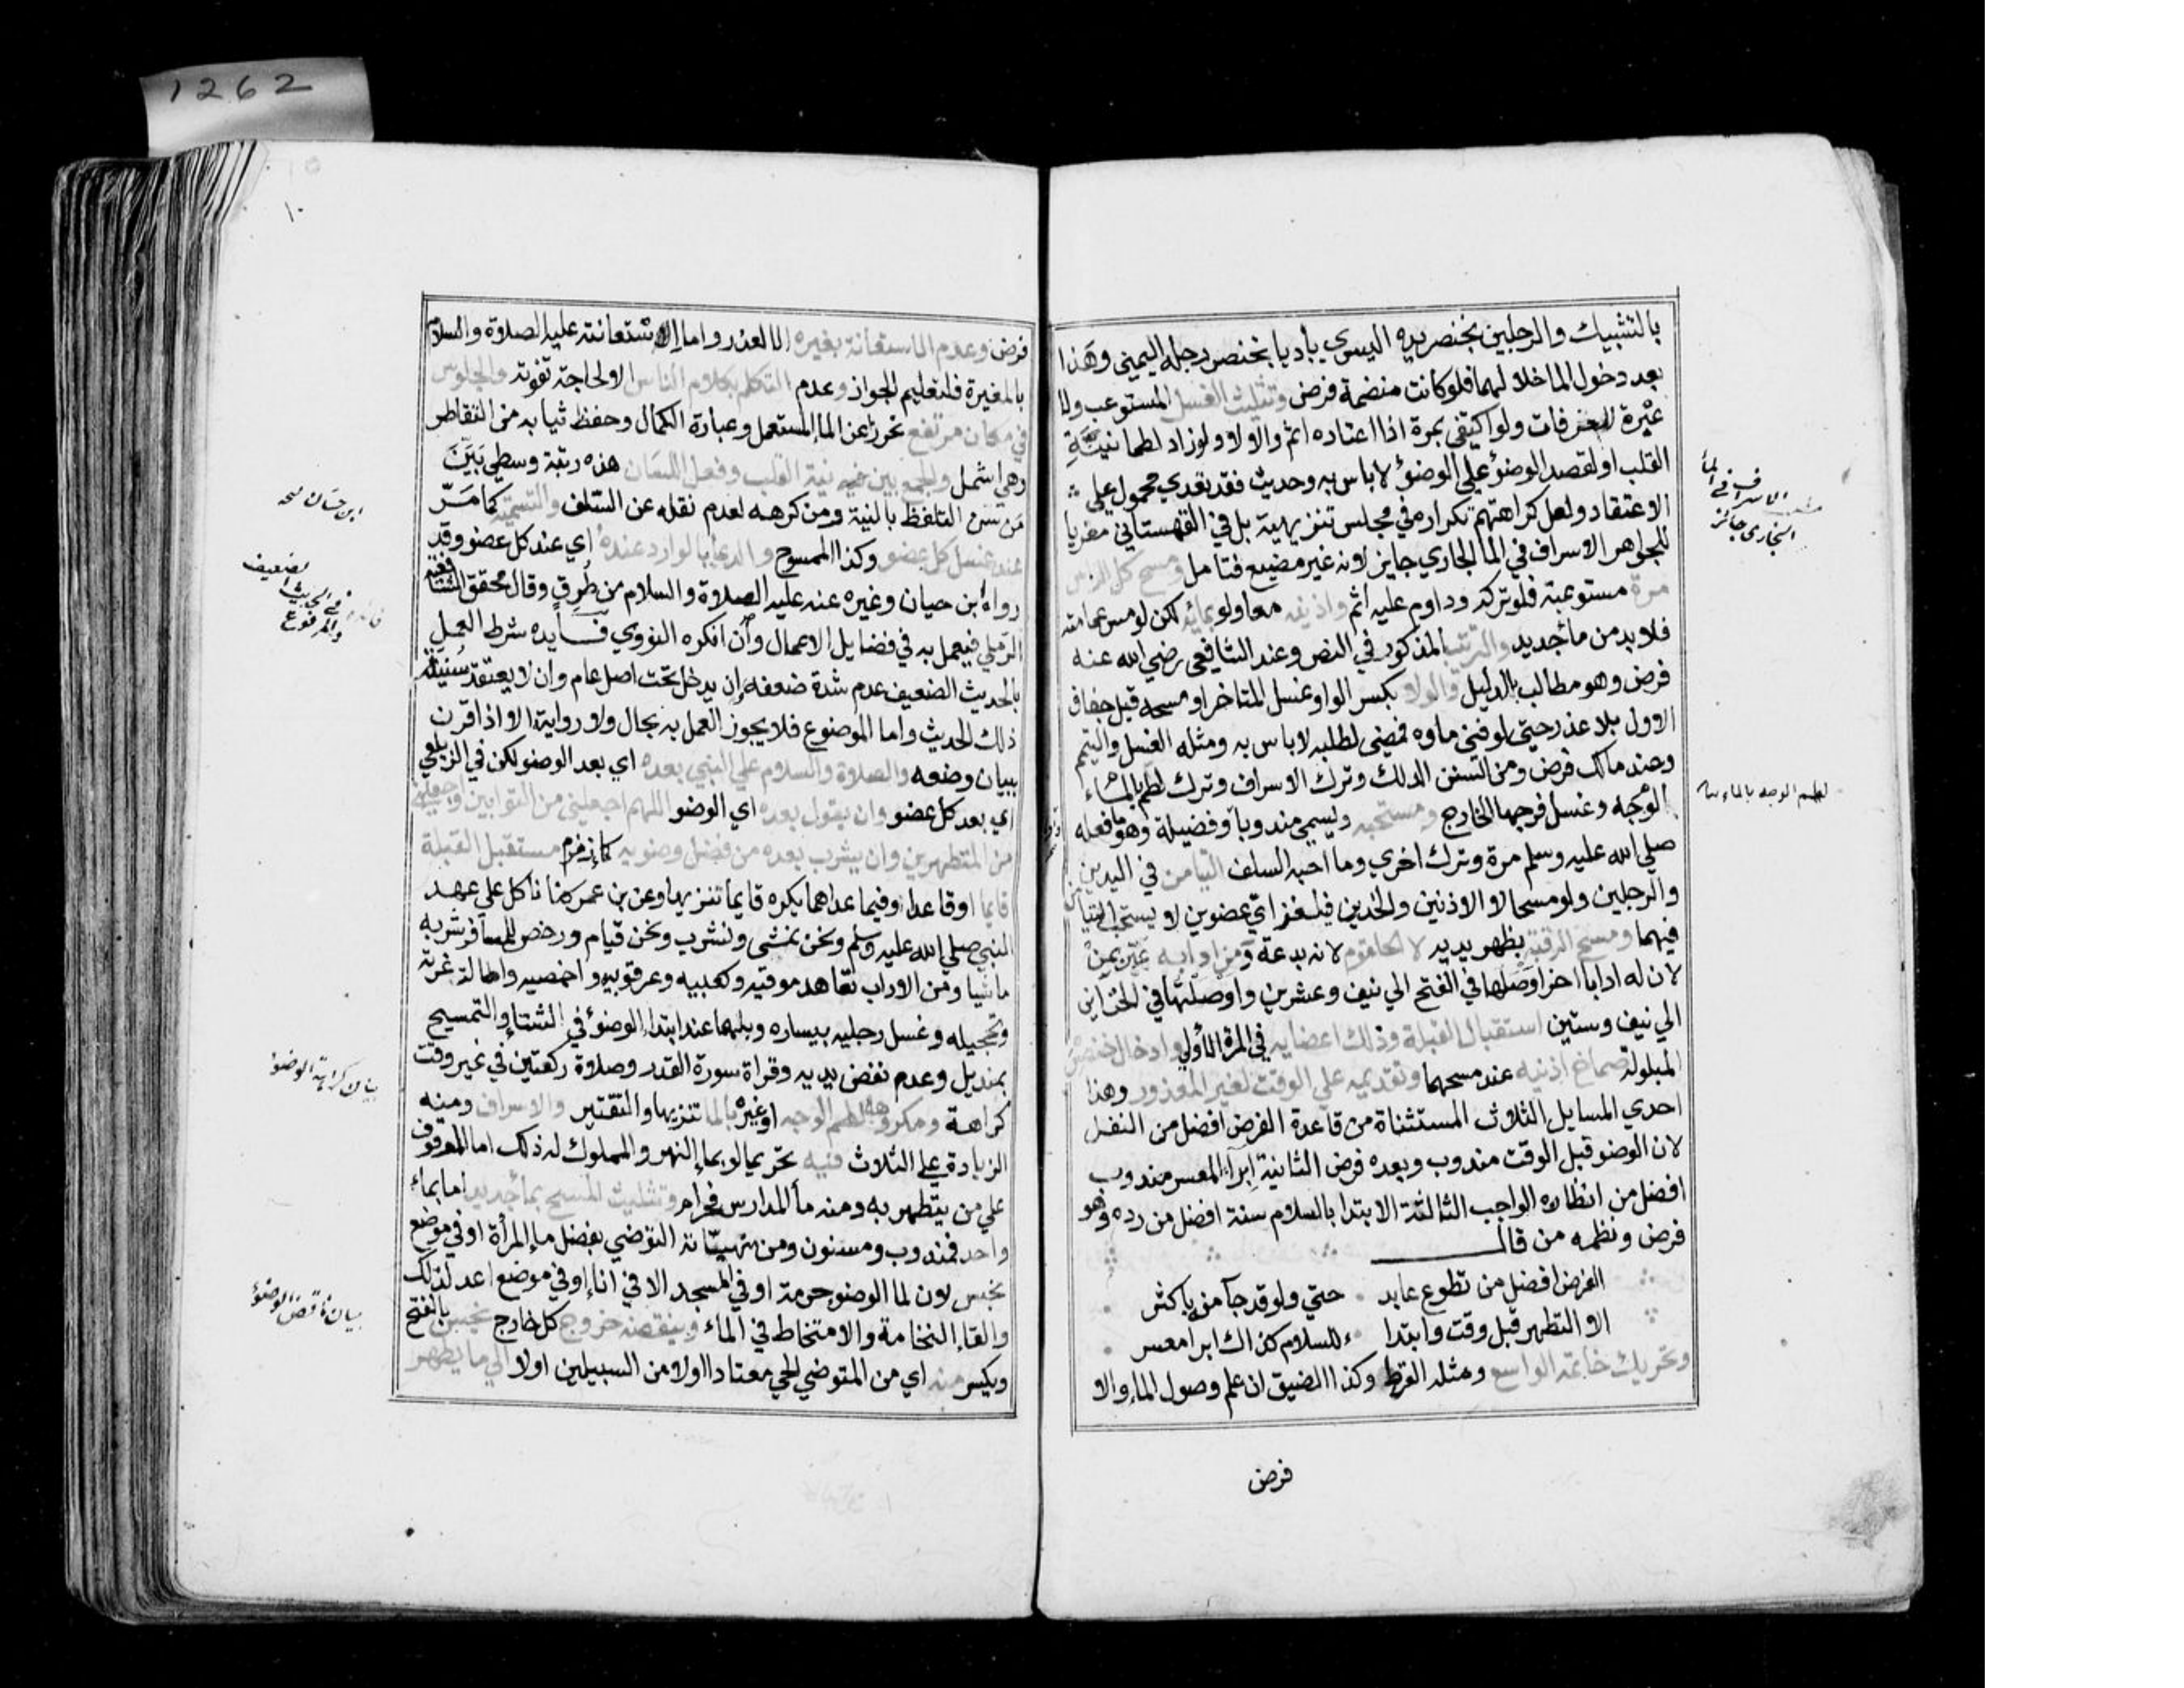 1262
بالتشبيك والرجلين بخنصر يده اليسري باديا بخنصر رجله اليمني وهذا
بعد دخول الما خلالهما فلو كانت منضمة فرض وتثليث الغسل المستوعب ولا
عبرة للغرفات ولو اكتفي بمرة اذا اعتاده اثم والا لا ولو زاد لطمانينة
القلب او لقصد الوضوء علي الوضوء لا باس به وحديث فقد تعدي محمول علي
الاعتقاد ولعل كراهتهم تكراره في مجلس تنزيهية بل في القهستاني معزيا
للجواهر الاسراف في الما الجاري جايز لانه غير مضيع فتامل ومسح كل الراس
مرة مستوعبة فلو تركه وداوم عليه اثم واذنيه معا ولو بمائه لكن لو مس عمامته
فلا بد من ماء جديد والترتيب المذكور في النص وعند الشافعي رضي الله عنه
فرض وهو مطالب بالدليل والولا بكسر الواو غسل المتاخر او مسحه قبل جفاف
الاول بلا عذر حتي لو فني ماوه فمضي لطلبه لا باس به ومثله الغسل والتيمم
وعند مالك فرض ومن السنن الدلك وترك الاسراف وترك لطم بالماء
الوجه وغسل فرجها الخارج ومستحبه ويسمي مندوبا وفضيلة وهو ما فعله
صلي الله عليه وسلم مرة وترك اخري وما احبه السلف التيامن في اليدين
والرجلين ولو مسحا لا الاذنين والخدين فيلغز اي عضوين لا يستحب التيامن
فيهما ومسح الرقبة بظهر يديه لا الحلقوم لانه بدعة ومن ادابه عبر بمن
لان له ادابا اخر اوصلها في الفتح الي نيف وعشرين واوصلتها في الخزاين
الي نيف وستين استقبال القبلة ودلك اعضايه في المرة الاولي وادخال خنصره
المبلولة صماخ اذنيه عند مسحهما وتقديمه علي الوقت لغير المعذور وهذا
احدي المسايل الثلاث المستثناة من قاعدة الفرض افضل من النفل
لان الوضو قبل الوقت مندوب وبعده فرض الثانية ابراء المعسر مندوب
افضل من انظاره الواجب الثالثة الابتدا بالسلام سنة افضل من رده وهو
فرض ونظمه من قال
الفرض افضل من تطوع عابد حتي ولو قد جآ منه باكثر
الا التطهر قبل وقت وابتدا ء للسلام كذاك ابرا معسر
وتحريك خاتمه الواسع ومثله القرط وكذا الضيق ان علم وصول الماء والا
فرض
الاسراف في الماء
الجاري جائز
لطم الوجه بالماء
١٠
فرض وعدم الاستعانة بغيره الا لعذر واما استعانته عليه الصلاة والسلام
بالمغيرة فلتعليم الجواز وعدم التكلم بكلام الناس الا لحاجة تفوته والجلوس
في مكان مرتفع تحرزا عن الماء المستعمل وعبارة الكمال وحفظ ثيابه من التقاطر
وهي اشمل والجمع بين نية القلب وفعل اللسان هذه رتبة وسطي بين
من سن التلفظ بالنية ومن كرهه لعدم نقله عن السلف والتسمية كما مر
عند غسل كل عضو وكذا الممسوح والدعا بالوارد عنده اي عند كل عضو وقد
رواه ابن حيان وغيره عنه عليه الصلاة والسلام من طرق وقال محقق الشافعية
الرملي فيعمل به في فضايل الاعمال وان انكره النووي فايده شرط العمل
بالحديث الضعيف عدم شدة ضعفه وان يدخل تحت اصل عام وان لا يعتقد سنية
ذلك الحديث واما الموضوع فلا يجوز العمل به بحال ولا رواية الا اذا اقرن
ببيان وضعه والصلاة والسلام علي النبي بعده اي بعد الوضو لكن في الزيلعي
اي بعد كل عضو وان يقول بعده اي الوضو اللهم اجعلني من التوابين واجعلني
من المتطهرين وان يشرب بعده من فضل وضويه كماء زمزم مستقبل القبلة
قايما او قاعدا وفيما عداهما يكره قايما تنزيها وعن بن عمر كنا ناكل علي عهد
النبي صلي الله عليه وسلم ونحن نمشي ونشرب ونحن قيام ورخص للمسافر شربه
ماشيا ومن الاداب تعاهد موقيه وكعبيه وعرقوبيه واخمصيه واطالة غرته
وتحجيله وغسل رجليه بيساره وبلهما عند ابتداء الوضوء في الشتاء والتمسيح
بمنديل وعدم نفض يديه وقراة سورة القدر وصلاة ركعتين في غير وقت
كراهة ومكروهه لطم الوجه او غيره بالما تنزيها والتقتير والاسراف ومنه
الزيادة علي الثلاث فيه تحريما لو بماء النهر والمملوك له ذلك اما الموقوف
علي من يتطهر به ومنه ماء المدارس فحرام وتثليث المسح بماء جديد اما بماء
واحد فمندوب ومسنون ومن منهياته التوضي بفضل ماء المرأة او في موضع
نجس لان لما الوضو حرمة او في المسجد الا في اناء او في موضع اعد لذلك
والقاء النخامة والامتخاط في الماء وينقضه خروج كل خارج نجس بالفتح
ويكسر منه اي من المتوضي الحي معتادا اولا من السبيلين اولا الي ما يطهر
ابن حبان
في الحديث الضعيف
والمرفوع
بيان كراهة الوضوء
بيان نواقض الوضوء